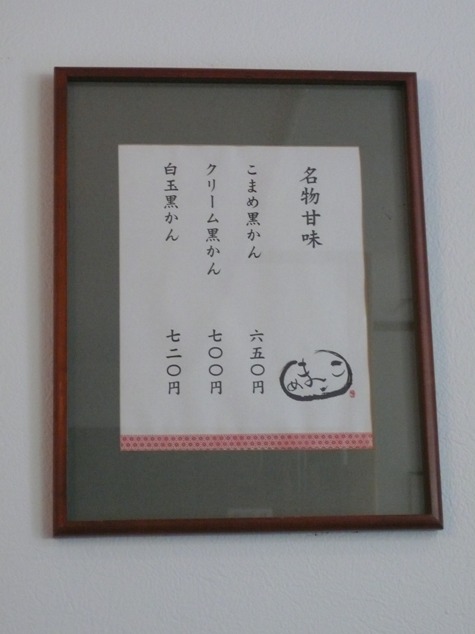 名物甘味
こまめ黒かん 六五〇円
クリーム黒かん 七〇〇円
白玉黒かん 七二〇円
こーまめ